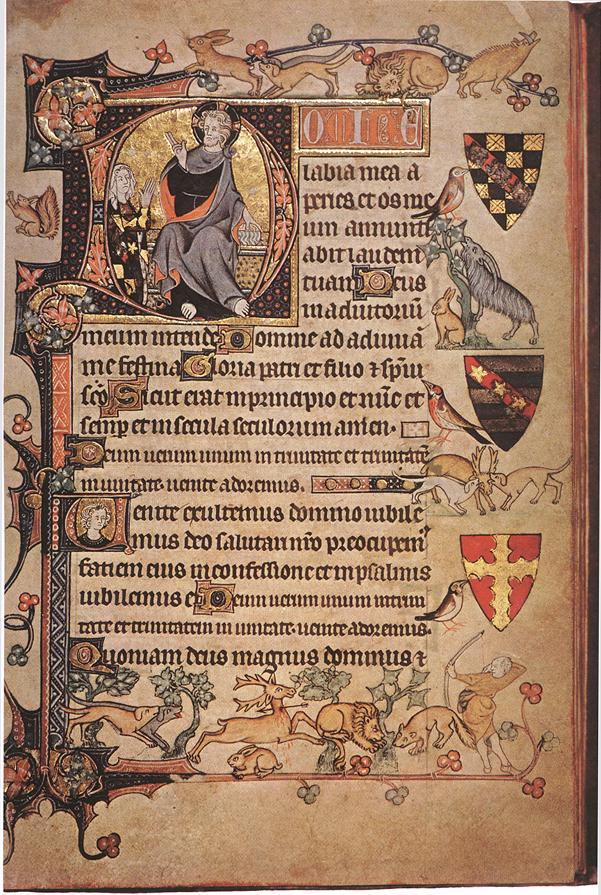 DOMINE
labia mea a
peries et os me
um annunti
abit laudem
tuam Deus
in adiutoriū
meum intende Domine ad adiuuā
me festina Gloria patri et filio ⁊ sp̄ui
sc̄o Sicut erat in principio et nūc et
semp̄ et in secula seculorum amen.
Deum uerum unum in trinitate et trinitatē
in unitate. uenite adoremus.
Venite exultemus domino iubile
mus deo salutari nr̄o preocupem᷒
faciem eius in confessione et in psalmis
iubilemus ei Deum uerum unum in trini
tate et trinitatem in unitate. uenite adoremus.
Quoniam deus magnus dominus ⁊